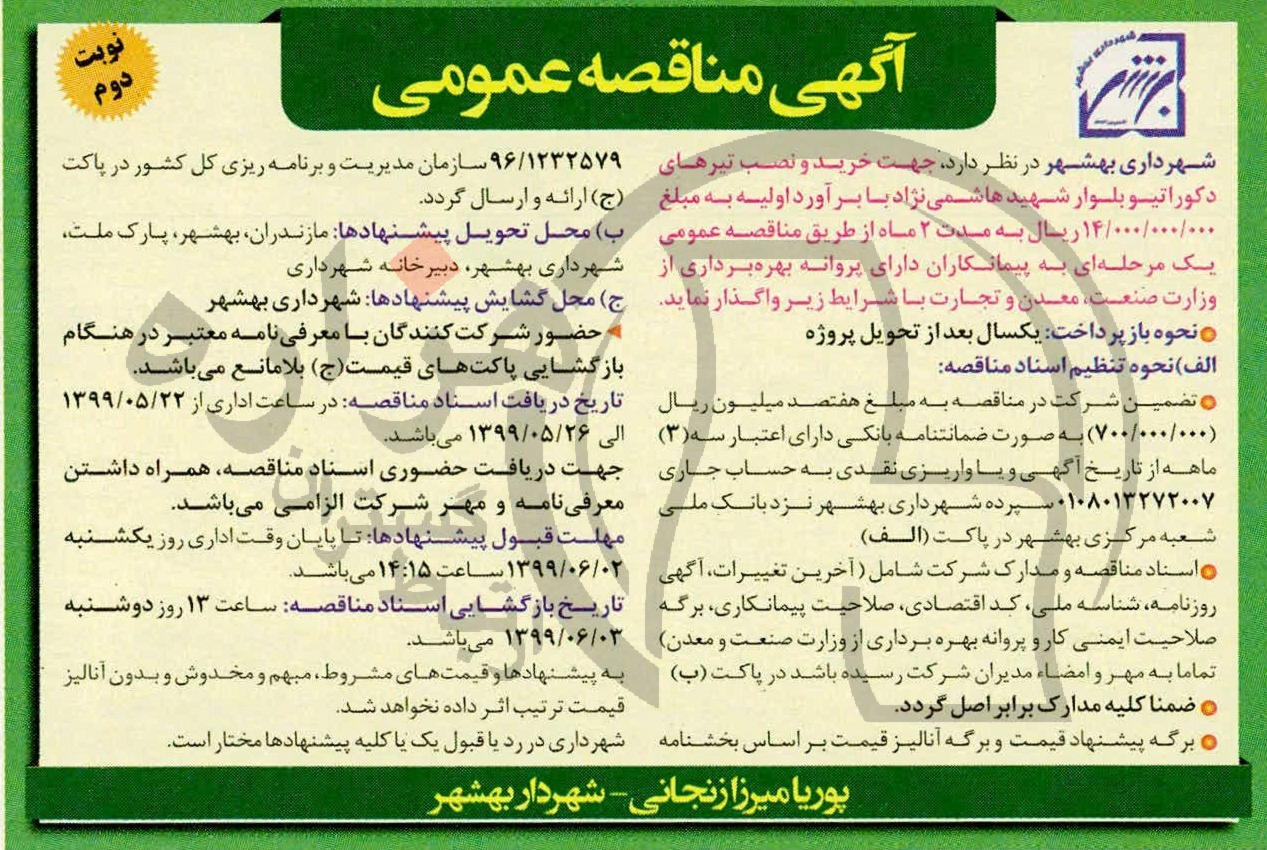 آگهی مناقصه عمومی
نوبت
دوم
شهرداری بهشهر
شهرداری بهشهر در نظر دارد، جهت خرید و نصب تیرهای
دکوراتیو بلوار شهید هاشمی‌نژاد با برآورد اولیه به مبلغ
۱۴/۰۰۰/۰۰۰/۰۰۰ ریال به مدت ۲ ماه از طریق مناقصه عمومی
یک مرحله‌ای به پیمانکاران دارای پروانه بهره‌برداری از
وزارت صنعت، معدن و تجارت با شرایط زیر واگذار نماید.
نحوه بازپرداخت: یکسال بعد از تحویل پروژه
الف) نحوه تنظیم اسناد مناقصه:
تضمین شرکت در مناقصه به مبلغ هفتصد میلیون ریال
(۷۰۰/۰۰۰/۰۰۰) به صورت ضمانتنامه بانکی دارای اعتبار سه (۳)
ماهه از تاریخ آگهی و یا واریزی نقدی به حساب جاری
۰۱۰۸۰۱۳۲۷۲۰۰۷ سپرده شهرداری بهشهر نزد بانک ملی
شعبه مرکزی بهشهر در پاکت (الف)
اسناد مناقصه و مدارک شرکت شامل (آخرین تغییرات، آگهی
روزنامه، شناسه ملی، کد اقتصادی، صلاحیت پیمانکاری، برگه
صلاحیت ایمنی کار و پروانه بهره برداری از وزارت صنعت و معدن)
تماما به مهر و امضاء مدیران شرکت رسیده باشد در پاکت (ب)
ضمنا کلیه مدارک برابر اصل گردد.
برگه پیشنهاد قیمت و برگه آنالیز قیمت بر اساس بخشنامه
۹۶/۱۲۳۲۵۷۹ سازمان مدیریت و برنامه ریزی کل کشور در پاکت
(ج) ارائه و ارسال گردد.
ب) محل تحویل پیشنهادها: مازندران، بهشهر، پارک ملت،
شهرداری بهشهر، دبیرخانه شهرداری
ج) محل گشایش پیشنهادها: شهرداری بهشهر
حضور شرکت‌کنندگان با معرفی‌نامه معتبر در هنگام
بازگشایی پاکت‌های قیمت (ج) بلامانع می‌باشد.
تاریخ دریافت اسناد مناقصه: در ساعت اداری از ۱۳۹۹/۰۵/۲۲
الی ۱۳۹۹/۰۵/۲۶ می‌باشد.
جهت دریافت حضوری اسناد مناقصه، همراه داشتن
معرفی‌نامه و مهر شرکت الزامی می‌باشد.
مهلت قبول پیشنهادها: تا پایان وقت اداری روز یکشنبه
۱۳۹۹/۰۶/۰۲ ساعت ۱۴:۱۵ می‌باشد.
تاریخ بازگشایی اسناد مناقصه: ساعت ۱۳ روز دوشنبه
۱۳۹۹/۰۶/۰۳ می‌باشد.
به پیشنهادها و قیمت‌های مشروط، مبهم و مخدوش و بدون آنالیز
قیمت ترتیب اثر داده نخواهد شد.
شهرداری در رد یا قبول یک یا کلیه پیشنهادها مختار است.
پوریا میرزازنجانی - شهردار بهشهر